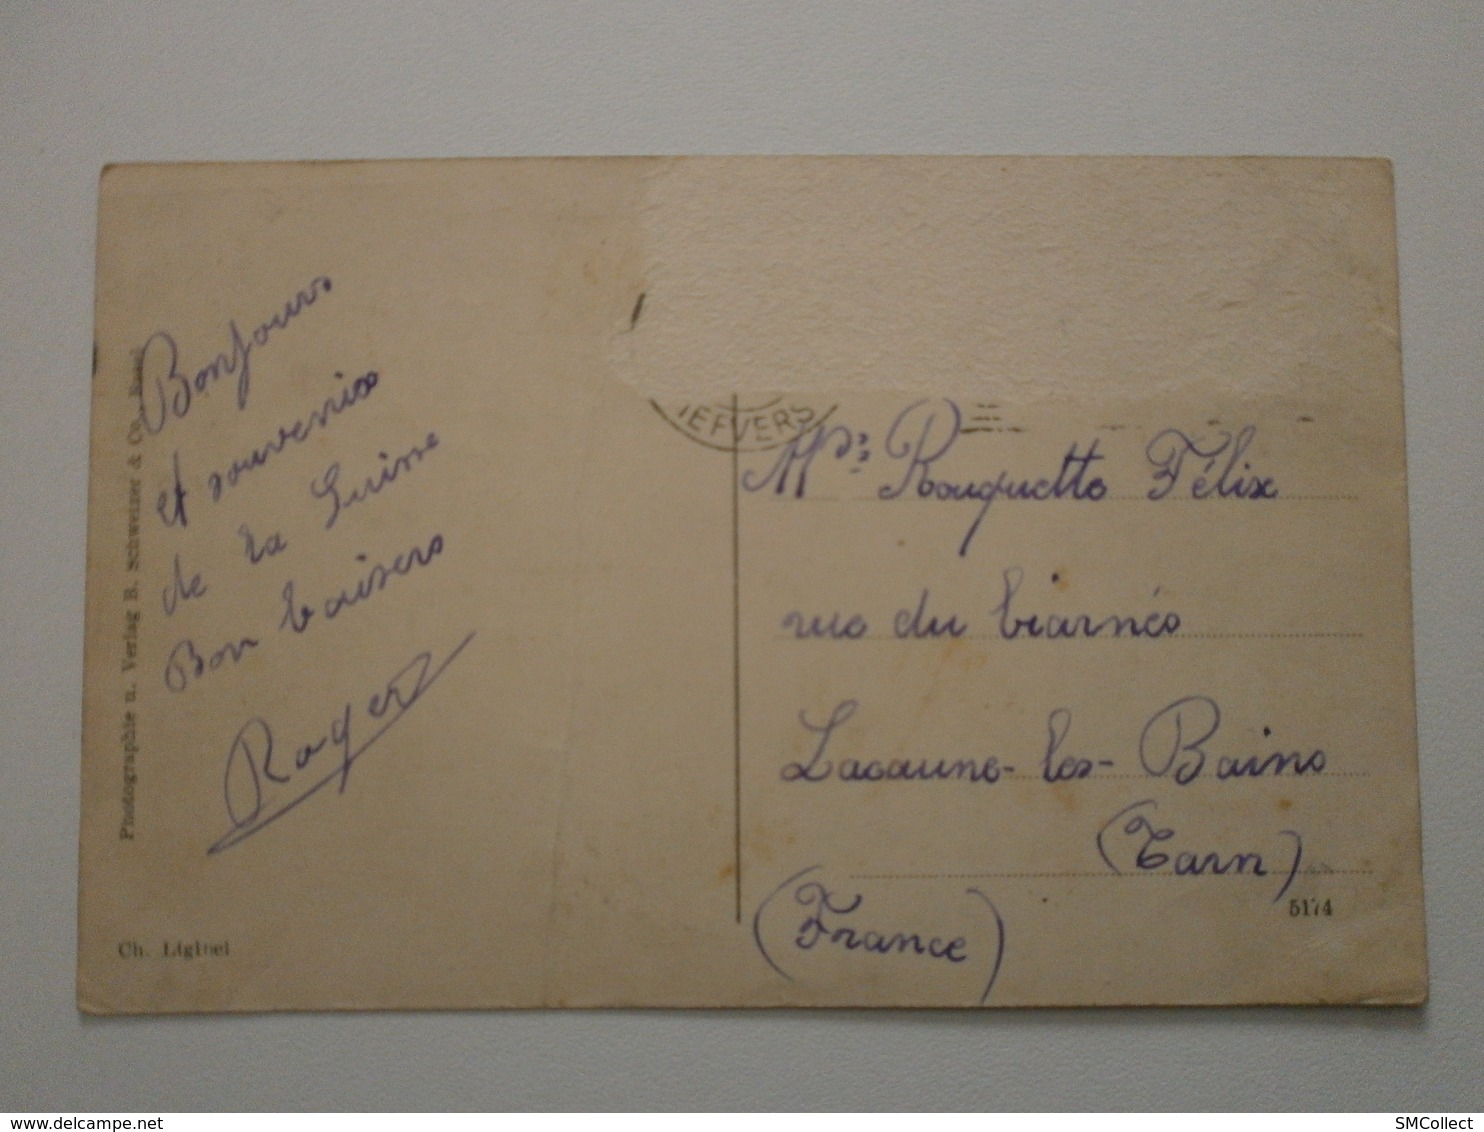 Bonjours
et souvenirs
de la Suisse
Bon baisers
Roger
Photographie u. Verlag B. Schweizer & Co.
Ch. Liginel
IEFVERS
Mr: Rouquette Félix
rue du biarnés
Lacaune-les-Bains
(Tarn)
(France)
5174
SMCollect